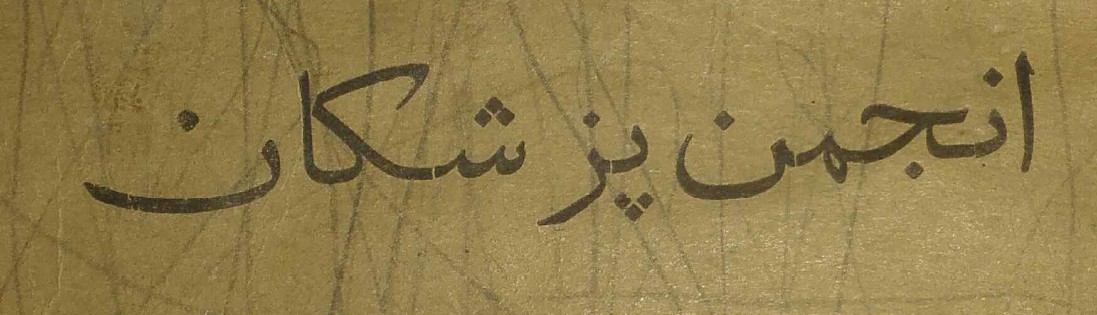 انجمن پزشکان